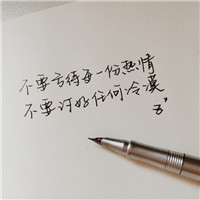 不要亏待每一份热情
不要讨好任何冷漠